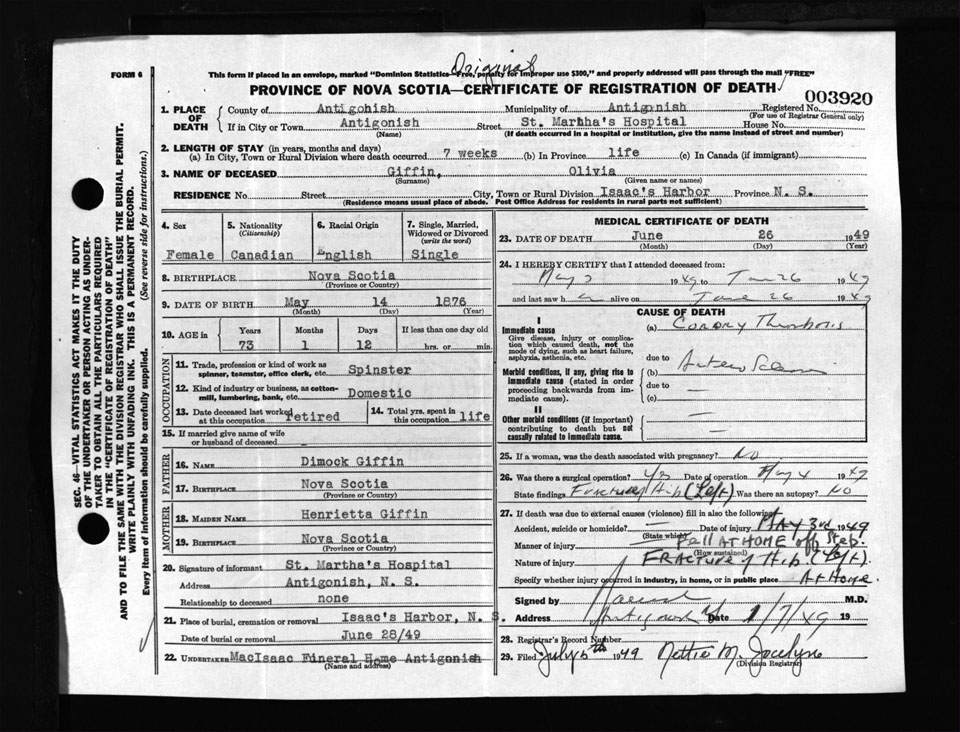 Original
FORM 6
This form if placed in an envelope, marked "Dominion Statistics—Free, penalty for improper use $300," and properly addressed will pass through the mail "FREE"
PROVINCE OF NOVA SCOTIA—CERTIFICATE OF REGISTRATION OF DEATH
003920
1. PLACE OF DEATH
County of Antigonish Municipality of Antigonish Registered No.
(For use of Registrar General only)
If in City or Town Antigonish Street St. Martha's Hospital House No.
(Name) (If death occurred in a hospital or institution, give the name instead of street and number)
2. LENGTH OF STAY (in years, months and days)
(a) In City, Town or Rural Division where death occurred 7 weeks (b) In Province life (c) In Canada (if immigrant)
3. NAME OF DECEASED Giffin, Olivia
(Surname) (Given name or names)
RESIDENCE No. Street City, Town or Rural Division Isaac's Harbor Province N. S.
(Residence means usual place of abode. Post Office Address for residents in rural parts not sufficient)
4. Sex 5. Nationality (Citizenship) 6. Racial Origin 7. Single, Married, Widowed or Divorced (write the word)
Female Canadian English Single
8. BIRTHPLACE Nova Scotia
(Province or Country)
9. DATE OF BIRTH May 14 1876
(Month) (Day) (Year)
10. AGE in Years Months Days If less than one day old
73 1 12 hrs. or min.
OCCUPATION
11. Trade, profession or kind of work as spinner, teamster, office clerk, etc. Spinster
12. Kind of industry or business, as cotton-mill, lumbering, bank, etc. Domestic
13. Date deceased last worked at this occupation retired 14. Total yrs. spent in this occupation life
15. If married give name of wife or husband of deceased
FATHER
16. NAME Dimock Giffin
17. BIRTHPLACE Nova Scotia
(Province or Country)
MOTHER
18. MAIDEN NAME Henrietta Giffin
19. BIRTHPLACE Nova Scotia
(Province or Country)
20. Signature of informant St. Martha's Hospital
Address Antigonish, N. S.
Relationship to deceased none
21. Place of burial, cremation or removal Isaac's Harbor, N. S.
Date of burial or removal June 28/49
22. UNDERTAKER MacIsaac Funeral Home Antigonish
(Name and address)
MEDICAL CERTIFICATE OF DEATH
23. DATE OF DEATH June 26 1949
(Month) (Day) (Year)
24. I HEREBY CERTIFY that I attended deceased from:
May 3 1949 to June 26 1949
and last saw h alive on June 26 1949
CAUSE OF DEATH
I
Immediate cause
Give disease, injury or complication which caused death, not the mode of dying, such as heart failure, asphyxia, asthenia, etc.
(a) Coronary Thrombosis
due to
Morbid conditions, if any, giving rise to immediate cause (stated in order proceeding backwards from immediate cause).
(b)
due to —
(c)
II
Other morbid conditions (if important) contributing to death but not causally related to immediate cause.
—
—
25. If a woman, was the death associated with pregnancy? No
26. Was there a surgical operation? Yes Date of operation May 4 1949
State findings Fracture Hip (Left) Was there an autopsy? No
27. If death was due to external causes (violence) fill in also the following:
Accident, suicide or homicide? — Date of injury May 3rd 1949
(State which)
Manner of injury Fell AT HOME off Step.
(How sustained)
Nature of injury FRACTURE of Hip. (Left)
Specify whether injury occurred in industry, in home, or in public place At Home.
Signed by M.D.
Address Antigonish Date 1/7/49 19
28. Registrar's Record Number
29. Filed July 6th 1949 Nettie M. Jocelyn
(Division Registrar)
SEC. 46—VITAL STATISTICS ACT MAKES IT THE DUTY
OF THE UNDERTAKER OR PERSON ACTING AS UNDER-
TAKER TO OBTAIN ALL THE PARTICULARS REQUIRED
IN THE "CERTIFICATE OF REGISTRATION OF DEATH"
AND TO FILE THE SAME WITH THE DIVISION REGISTRAR WHO SHALL ISSUE THE BURIAL PERMIT.
WRITE PLAINLY WITH UNFADING INK. THIS IS A PERMANENT RECORD.
Every item of information should be carefully supplied. (See reverse side for instructions.)